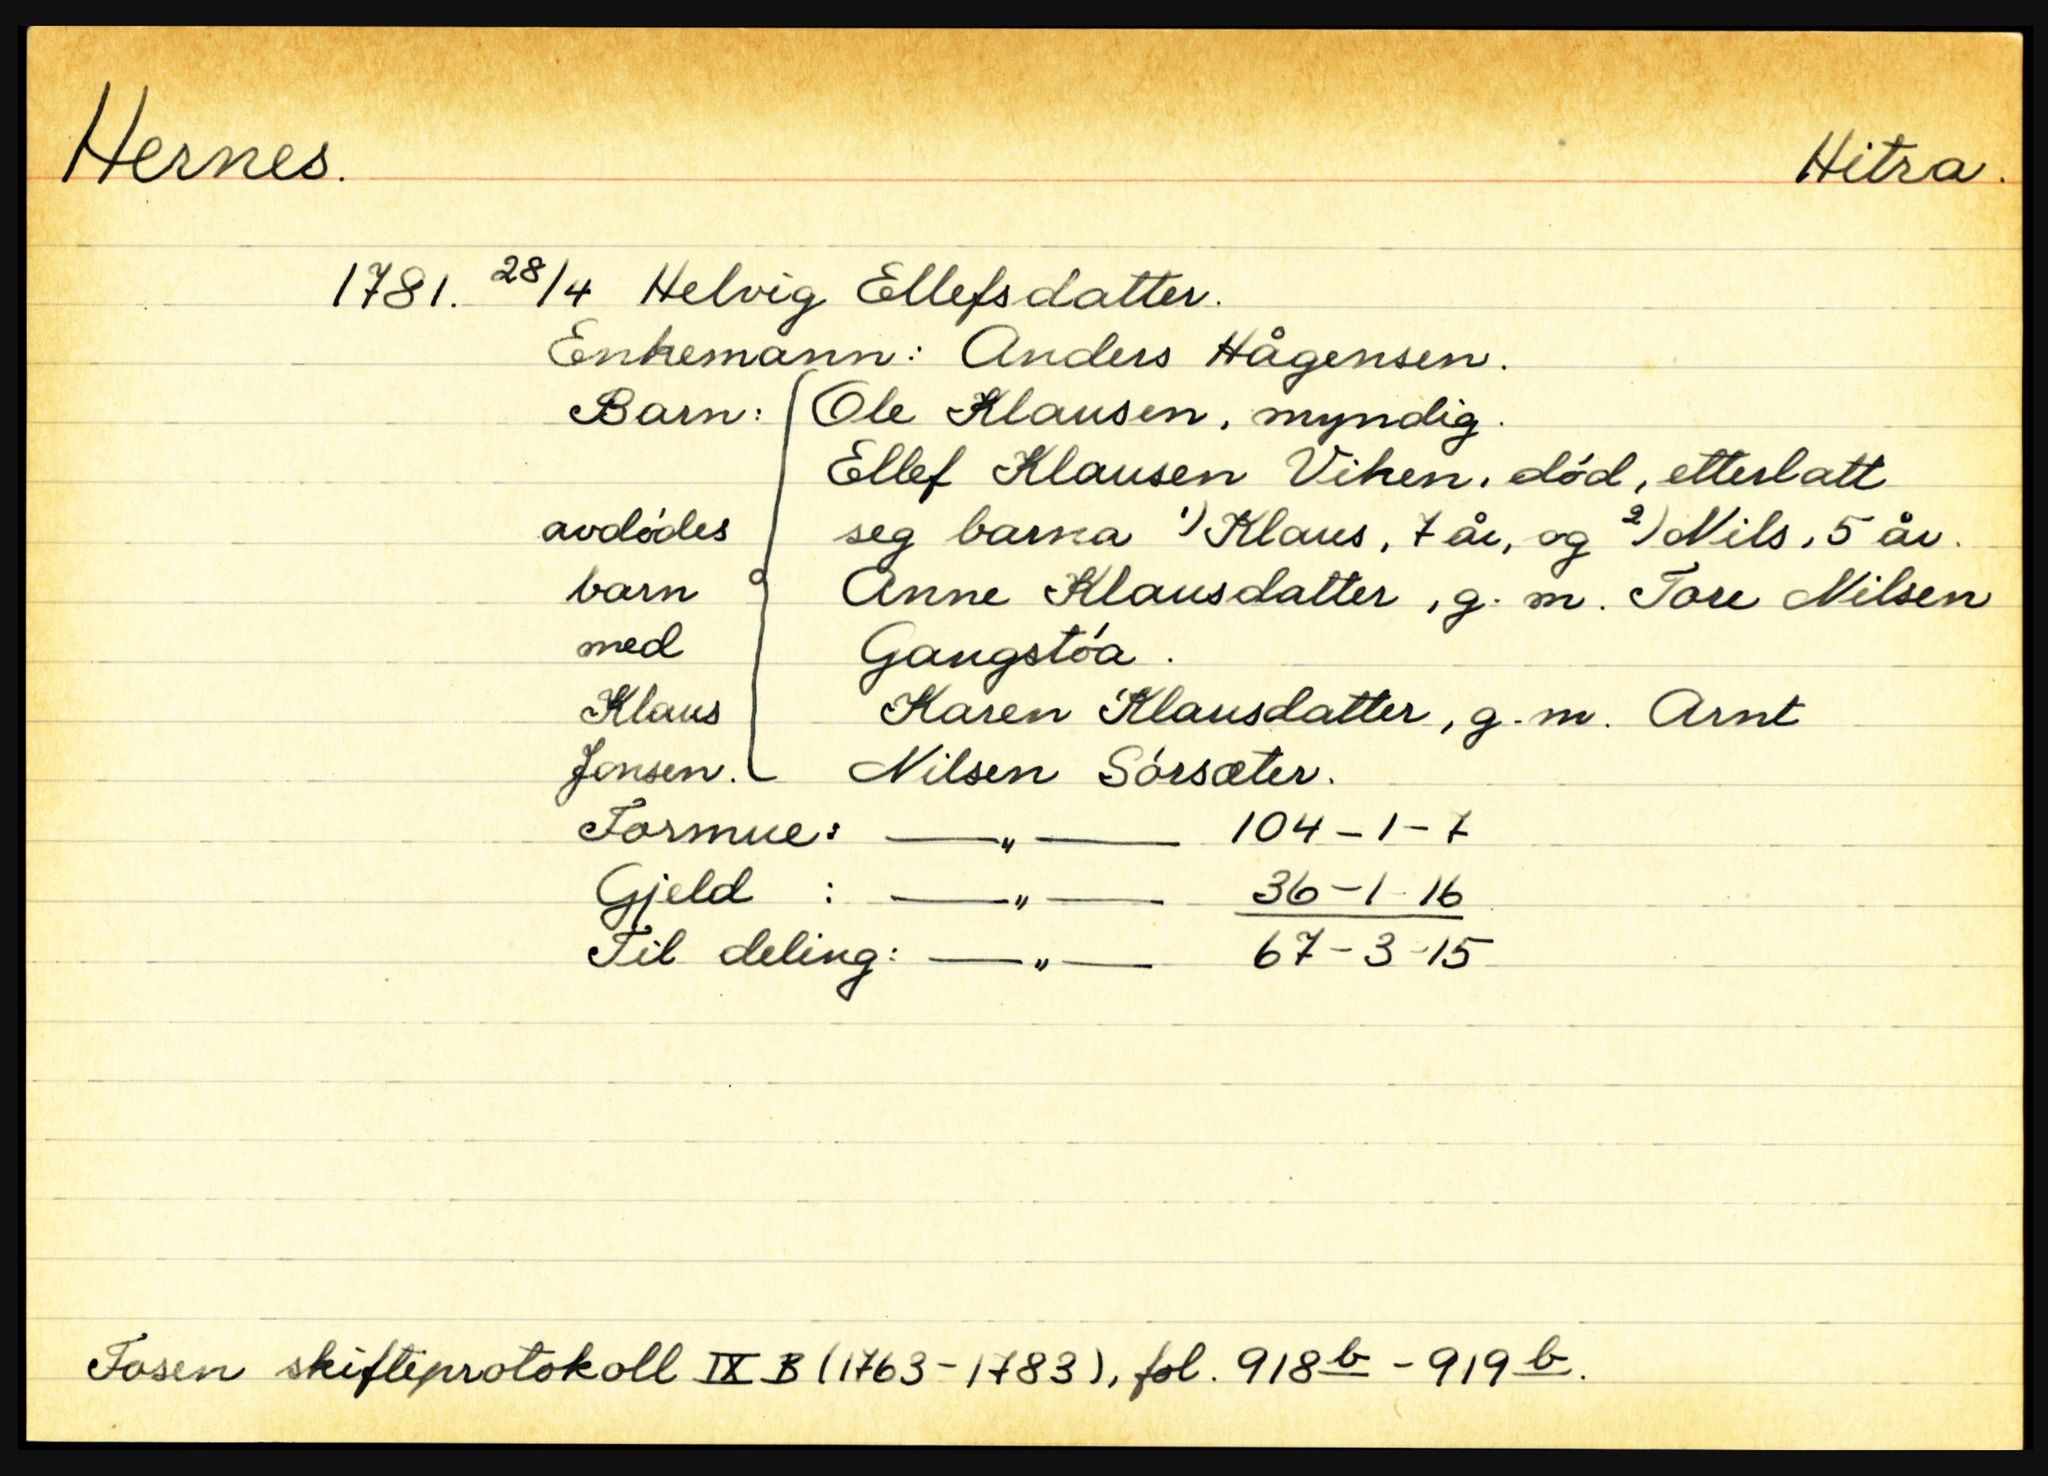 Hernes. Hitra.
1781. 28/4 Helvig Ellefsdatter.
Enkemann: Anders Hågensen.
Barn: Ole Klausen, myndig.
Ellef Klausen Viken, død, etterlatt
avdødes seg barna 1) Klaus, 7 år, og 2) Nils, 5 år.
barn Anne Klausdatter, g. m. Tore Nilsen
med Gangstøa.
Klaus Karen Klausdatter, g. m. Arnt
Jonsen. Nilsen Sørsæter.
Formue: —„— 104-1-7
Gjeld : —„— 36-1-16
Til deling: —„— 67-3-15
Fosen skifteprotokoll IX B (1763-1783), fol. 918b - 919b.